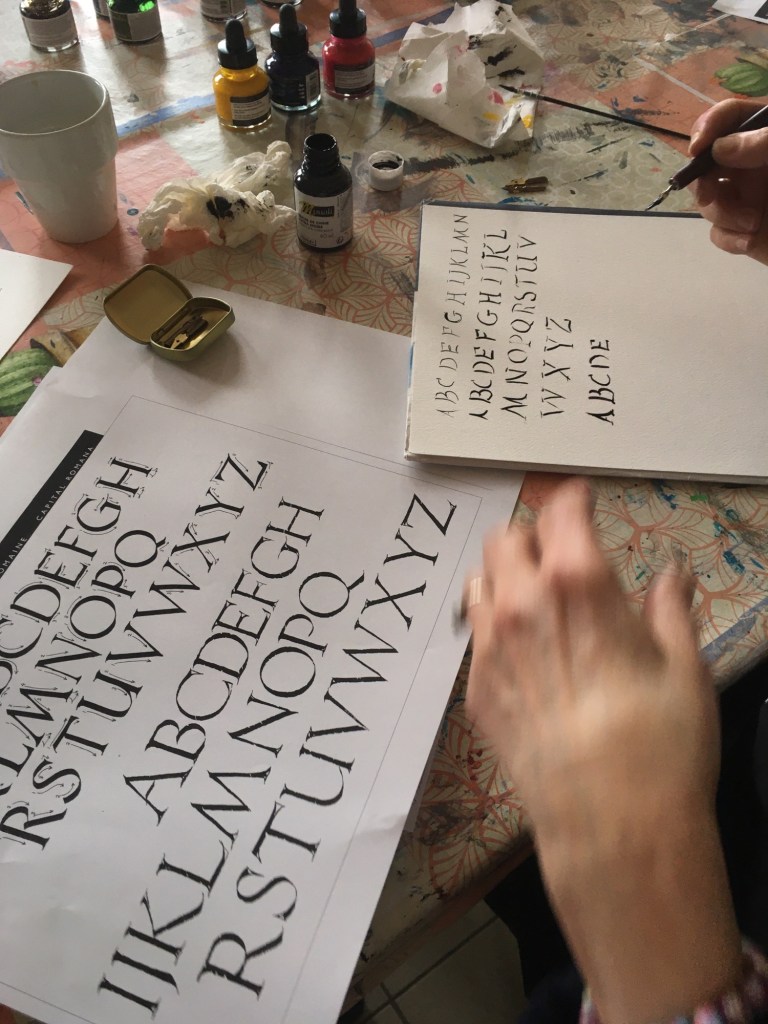 OMAINE CAPITAL ROMANA
BCDEFGH
LMNOPQ
RSTUVWXYZ
ABCDEFGH
IJKLMNOPQ
RSTUVWXYZ
ABCDEFGHIJKLMN
ABCDEFGHIJKL
MNOPQRSTUV
WXYZ
ABCDE